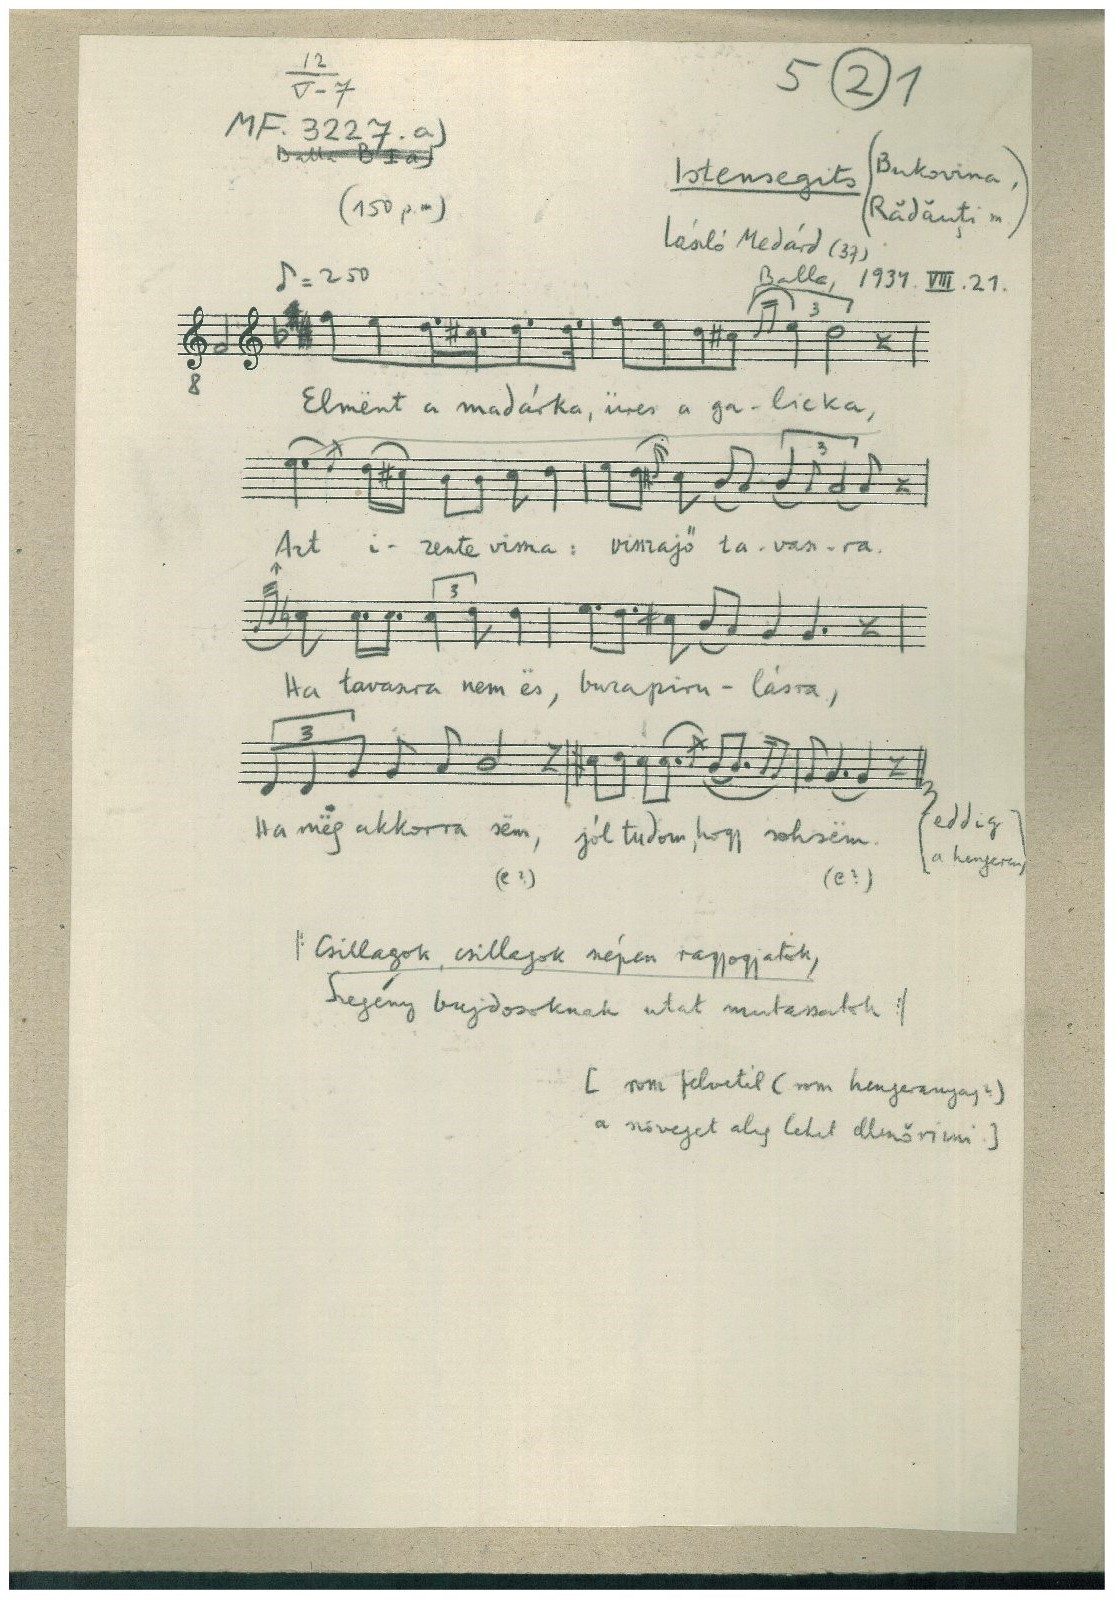 12
V-7
5 2 1
MF. 3227. a)
Balla B I a)
(150 p.m)
Istensegits (Bukovina,
Rădăuţi m.)
László Medárd (37)
Balla, 1934. VIII. 21.
♪ = 250
3
8
Elmënt a madárka, üres a ga-licka,
3
Azt i-zente vissza: visszajő ta-vasz-ra.
3
Ha tavaszra nem ës, buzapiru-lásra,
3
Ha mëg akkorra sëm, jól tudom, hogy sohsëm.
[eddig
a hengeren]
(e?) (e?)
|: Csillagok, csillagok szépen ragyogjatok,
Szegény bujdosoknak utat mutassatok :|
[ rossz felvétel ( rossz hengeranyag?)
a szöveget alig lehet ellenőrizni.]